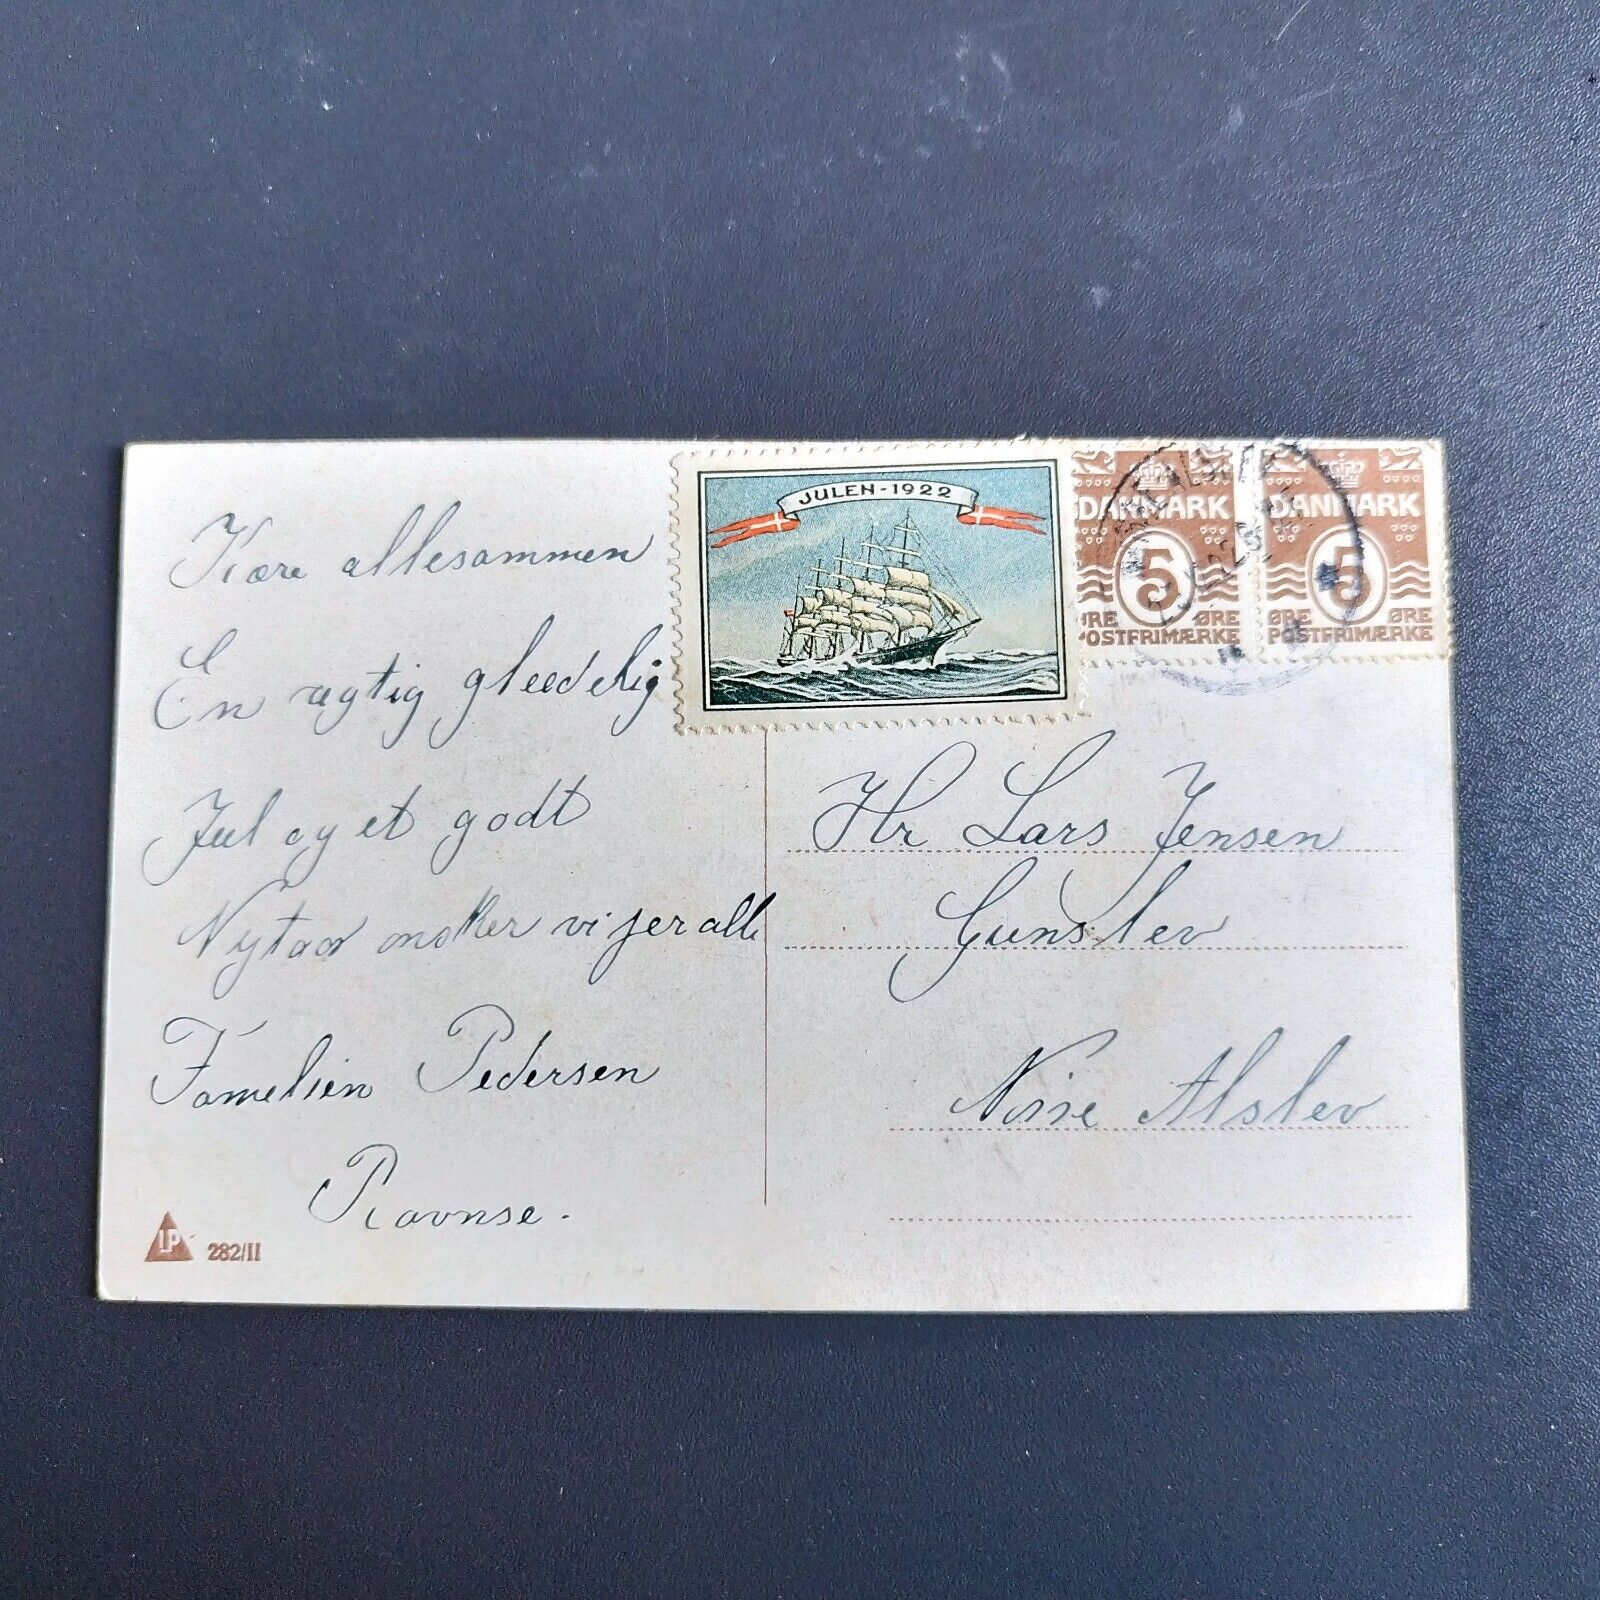 Kære allesammen
En rigtig gleedelig
Jul og et godt
Nytaar onsker vi jer alle
Familien Pedersen
Ravnse.
LP 282/II
JULEN-1922
DANMARK
5
ØRE ØRE
POSTFRIMÆRKE
DANMARK
5
ØRE ØRE
POSTFRIMÆRKE
Hr Lars Jensen
Gunslev
Nørre Alslev